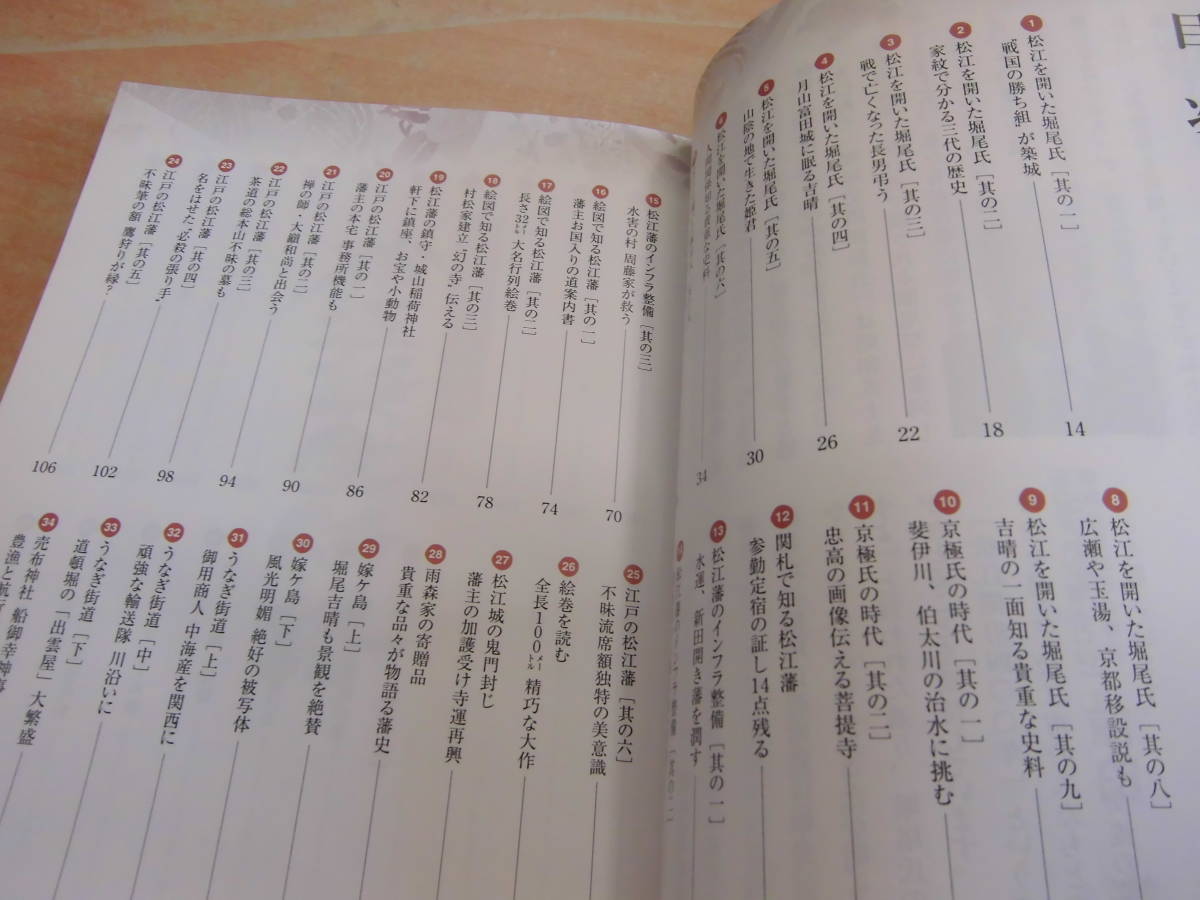 目次
1
松江を開いた堀尾氏［其の一］
"戦国の勝ち組"が築城
14
2
松江を開いた堀尾氏［其の二］
家紋で分かる三代の歴史
18
3
松江を開いた堀尾氏［其の三］
戦で亡くなった長男弔う
22
4
松江を開いた堀尾氏［其の四］
月山富田城に眠る吉晴
26
5
松江を開いた堀尾氏［其の五］
山陰の地で生きた姫君
30
6
松江を開いた堀尾氏［其の六］
34
8
松江を開いた堀尾氏［其の八］
広瀬や玉湯、京都移設説も
9
松江を開いた堀尾氏［其の九］
吉晴の一面知る貴重な史料
10
京極氏の時代［其の一］
斐伊川、伯太川の治水に挑む
11
京極氏の時代［其の二］
忠高の画像伝える菩提寺
12
関札で知る松江藩
参勤定宿の証し14点残る
13
松江藩のインフラ整備［其の一］
水運、新田開き藩を潤す
15
松江藩のインフラ整備［其の三］
水害の村 周藤家が救う
70
16
絵図で知る松江藩［其の一］
藩主お国入りの道案内書
74
17
絵図で知る松江藩［其の二］
長さ32メートル 大名行列絵巻
78
18
絵図で知る松江藩［其の三］
村松家建立"幻の寺"伝える
82
19
松江藩の鎮守・城山稲荷神社
軒下に鎮座、お宝や小動物
86
20
江戸の松江藩［其の一］
藩主の本宅 事務所機能も
90
21
江戸の松江藩［其の二］
禅の師・大巓和尚と出会う
94
22
江戸の松江藩［其の三］
茶道の総本山不昧の墓も
98
23
江戸の松江藩［其の四］
名をはせた"必殺の張り手"
102
24
江戸の松江藩［其の五］
不昧筆の額 鷹狩りが縁？
106
25
江戸の松江藩［其の六］
不昧流席額独特の美意識
26
絵巻を読む
全長100メートル 精巧な大作
27
松江城の鬼門封じ
藩主の加護受け寺運再興
28
雨森家の寄贈品
貴重な品々が物語る藩史
29
嫁ヶ島［上］
堀尾吉晴も景観を絶賛
30
嫁ヶ島［下］
風光明媚 絶好の被写体
31
うなぎ街道［上］
御用商人 中海産を関西に
32
うなぎ街道［中］
頑強な輸送隊 川沿いに
33
うなぎ街道［下］
道頓堀の「出雲屋」大繁盛
34
売布神社 船御幸神事
豊漁と航